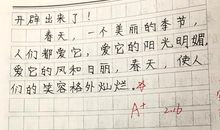 开辟出来了！
春天，一个美丽的季节，
人们都爱它，爱它的阳光明媚，
爱它的风和日丽，春天，使人
们的笑容格外灿烂。
A+